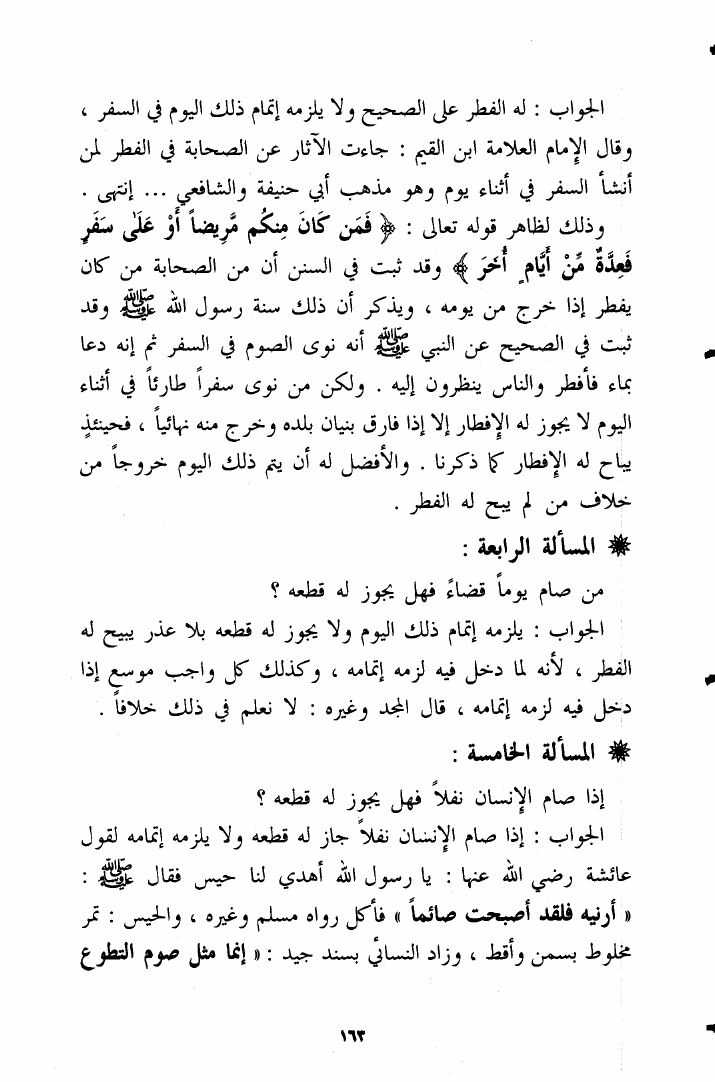 الجواب : له الفطر على الصحيح ولا يلزمه إتمام ذلك اليوم في السفر ،
وقال الإمام العلامة ابن القيم : جاءت الآثار عن الصحابة في الفطر لمن
أنشأ السفر في أثناء يوم وهو مذهب أبي حنيفة والشافعي ... إنتهى .
وذلك لظاهر قوله تعالى : ﴿ فَمَن كَانَ مِنكُم مَّرِيضاً أَوْ عَلَىٰ سَفَرٍ
فَعِدَّةٌ مِّنْ أَيَّامٍ أُخَرَ ﴾ وقد ثبت في السنن أن من الصحابة من كان
يفطر إذا خرج من يومه ، ويذكر أن ذلك سنة رسول الله ﷺ وقد
ثبت في الصحيح عن النبي ﷺ أنه نوى الصوم في السفر ثم إنه دعا
بماء فأفطر والناس ينظرون إليه . ولكن من نوى سفراً طارئاً في أثناء
اليوم لا يجوز له الإفطار إلا إذا فارق بنيان بلده وخرج منه نهائياً ، فحينئذٍ
يباح له الإفطار كما ذكرنا . والأفضل له أن يتم ذلك اليوم خروجاً من
خلاف من لم يبح له الفطر .
❋ المسألة الرابعة :
من صام يوماً قضاءً فهل يجوز له قطعه ؟
الجواب : يلزمه إتمام ذلك اليوم ولا يجوز له قطعه بلا عذر يبيح له
الفطر ، لأنه لما دخل فيه لزمه إتمامه ، وكذلك كل واجب موسع إذا
دخل فيه لزمه إتمامه ، قال المجد وغيره : لا نعلم في ذلك خلافاً .
❋ المسألة الخامسة :
إذا صام الإنسان نفلاً فهل يجوز له قطعه ؟
الجواب : إذا صام الإنسان نفلاً جاز له قطعه ولا يلزمه إتمامه لقول
عائشة رضي الله عنها : يا رسول الله أهدي لنا حيس فقال ﷺ :
« أرنيه فلقد أصبحت صائماً » فأكل رواه مسلم وغيره ، والحيس : تمر
مخلوط بسمن وأقط ، وزاد النسائي بسند جيد : « إنما مثل صوم التطوع
١٦٣